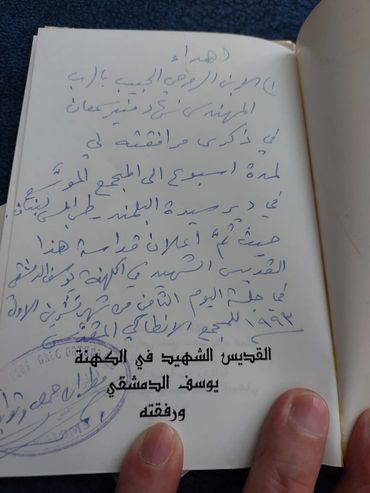 اهداء
الى الابن الروحي الحبيب بالرب
المهندس منير سمعان
في ذكرى مرافقته لي
لمدة اسبوع الى المجمع الموسَّع
في دير سيدة البلمند - طرابلس لبنان
حيث تمَّ اعلان قداسة هذا
القديس الشهيد في الكهنة يوسف الدمشقي
في جلسة اليوم الثامن من شهر تشرين الاول
١٩٩٣ للمجمع الانطاكي المقدس
القديس الشهيد في الكهنة
يوسف الدمشقي
ورفقته
مطران حمص